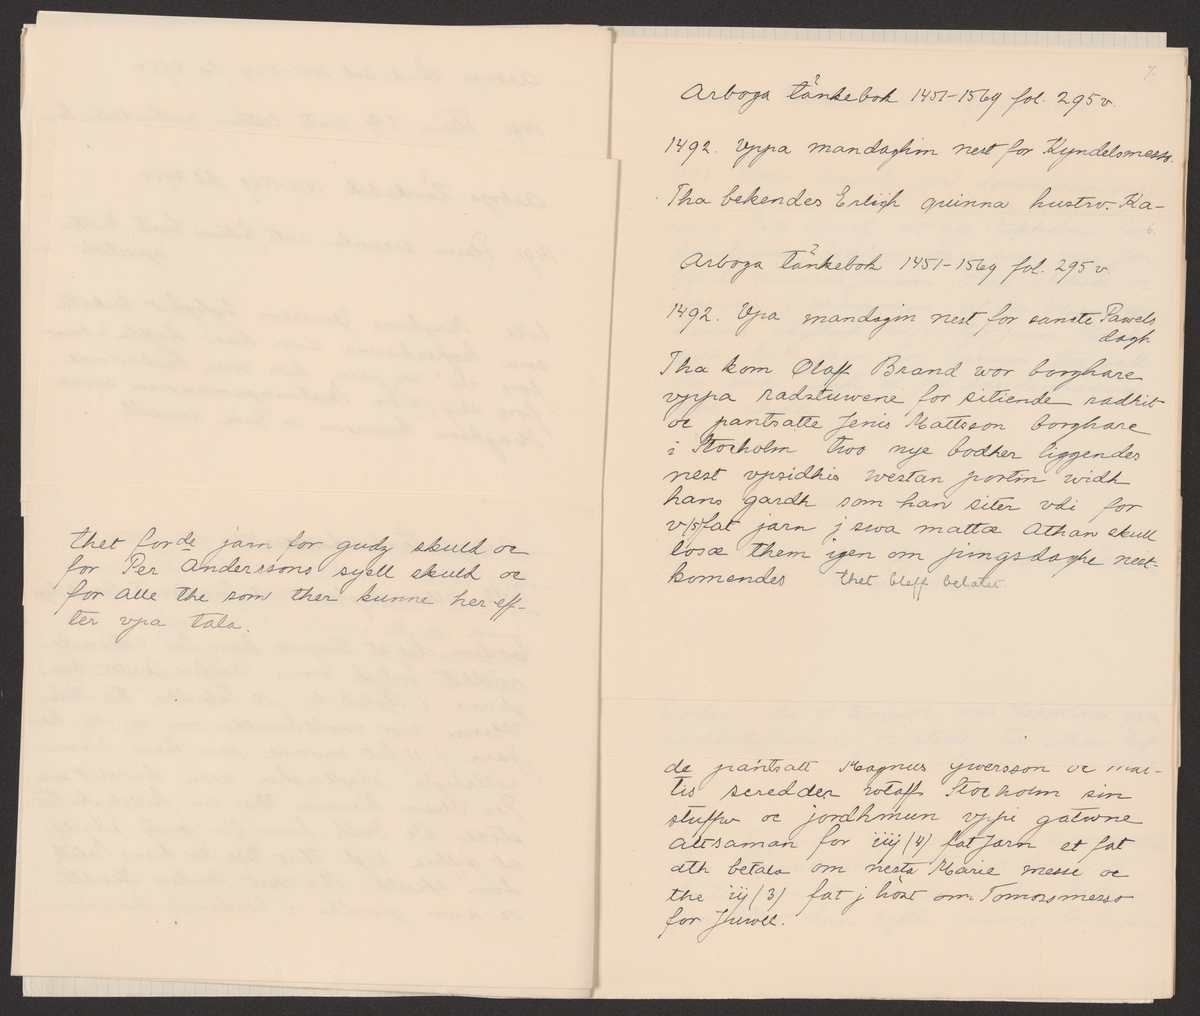 thet forde jarn for gudz skuld oc
for Per Anderssons syell skuld oc
for alle the som ther kunne her eff-
ter vpa tala.
7.
Arboga tänkebok 1451-1569 fol. 295 v.
1492. Vppa mandaghin nest for Kyndelsmesso.
Tha bekendes Erligh quinna hustrv. Ka-
6.
Arboga tänkebok 1451-1569 fol. 295 v.
1492. Vpa mandagin nest for sancte Pawels
dagh
Tha kom Olaff Brand wor borghare
vppa radstuwene for sitiende radhit
oc pantsatte Jenis Mattsson borghare
i Stocholm two nye bodher liggendes
nest vpsidhis westan portin widh
hans gardh som han siter vdi for
v/5/fat jarn j swa matta Athan skull
losæ them igen om pingsdaghe nest-
komendes thet bleff betalet
de pantsatt Magnus ywersson oc mat-
tis scredder wtaff Stocholm sin
stuffw oc jordhmun vppi gatwne
altsaman for iiij (4) fat Jarn et fat
ath betala om nesta Marie messe oc
the iij (3) fat j höst om Tomorsmesso
for Juwll.